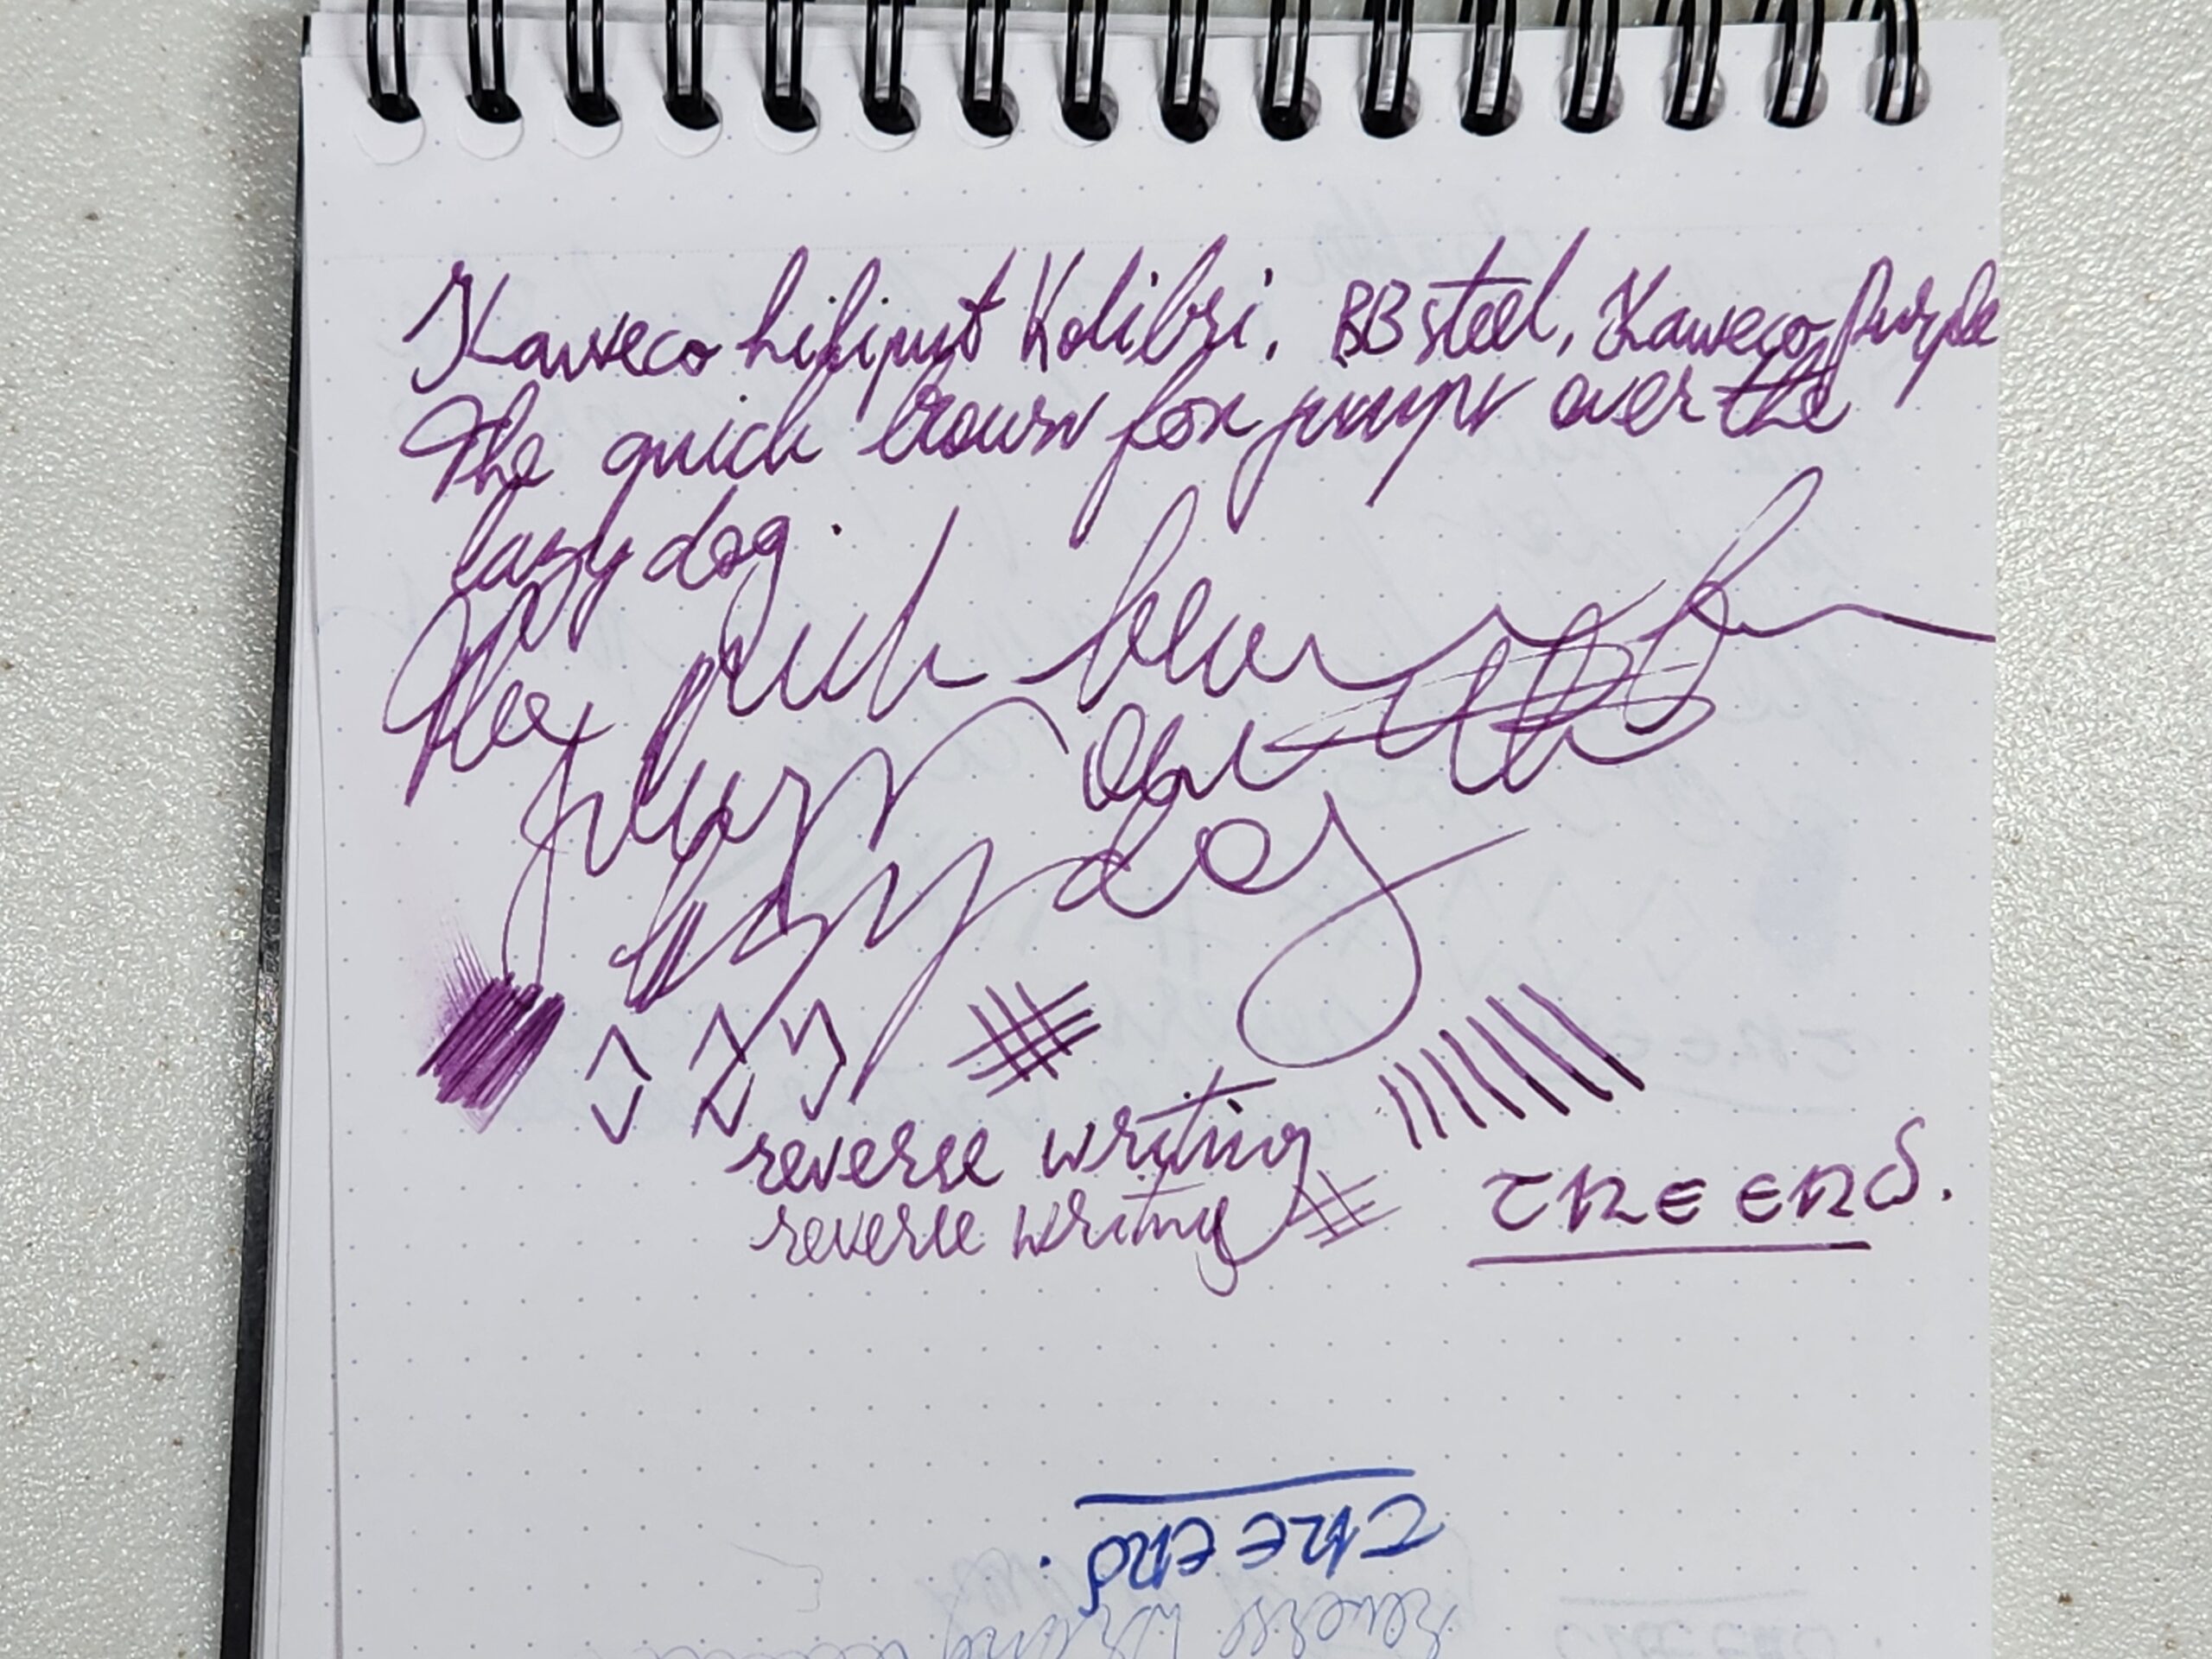 Kaweco Liliput Kolibri, BB steel, Kaweco Purple
The quick brown fox jumps over the
lazy dog.
The quick brown fox
jumps over the
lazy dog
reverse writing
reverse writing
THE END.
THE END.
reverse writing